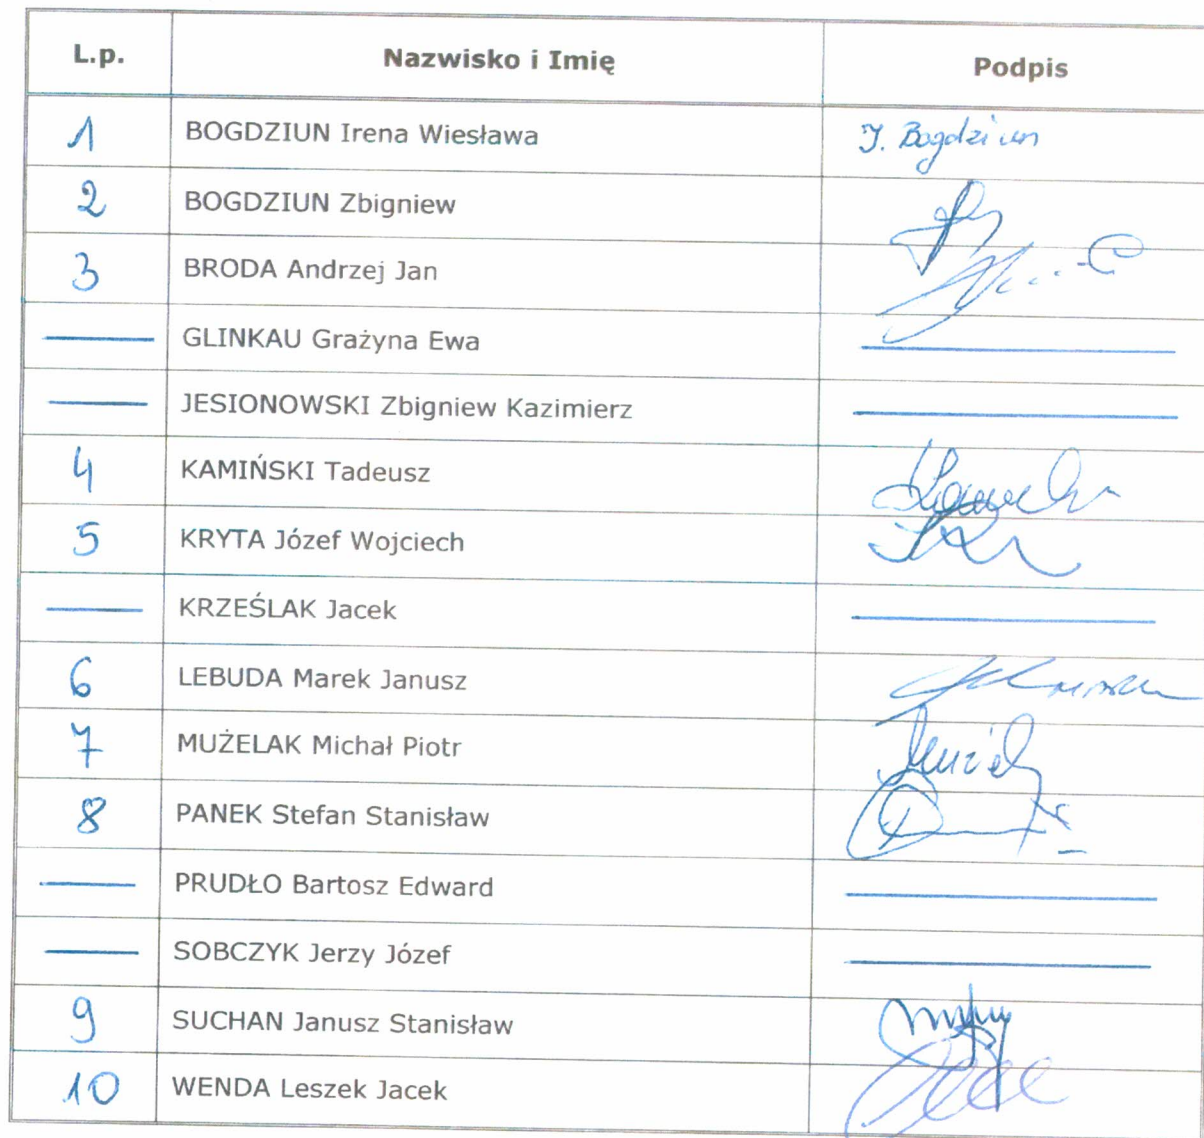 L.p. Nazwisko i Imię Podpis
1 BOGDZIUN Irena Wiesława J. Bogdziun
2 BOGDZIUN Zbigniew
3 BRODA Andrzej Jan
GLINKAU Grażyna Ewa
JESIONOWSKI Zbigniew Kazimierz
4 KAMIŃSKI Tadeusz
5 KRYTA Józef Wojciech
KRZEŚLAK Jacek
6 LEBUDA Marek Janusz
7 MUŻELAK Michał Piotr
8 PANEK Stefan Stanisław
PRUDŁO Bartosz Edward
SOBCZYK Jerzy Józef
9 SUCHAN Janusz Stanisław
10 WENDA Leszek Jacek